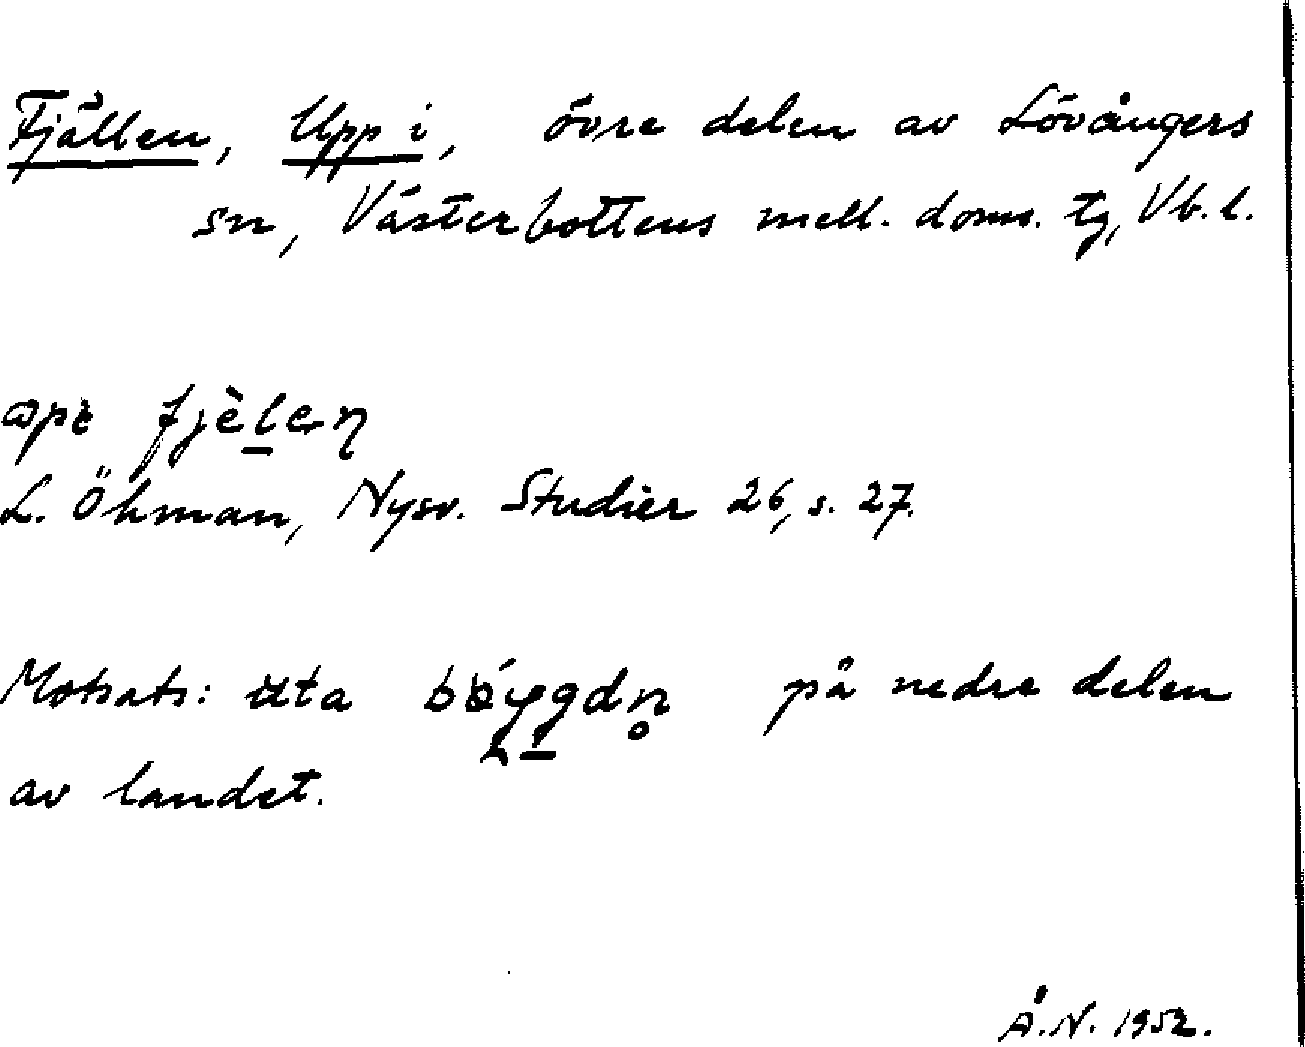 Fjällen, Upp i, övre delen av Lövångers
sn, Västerbottens mell. doms. tg, Vb. l.
fjèlen
L. Öhman, Nysv. Studier 26, s. 27.
Motsats: uta på nedre delen
av landet.
Å.N. 1952.